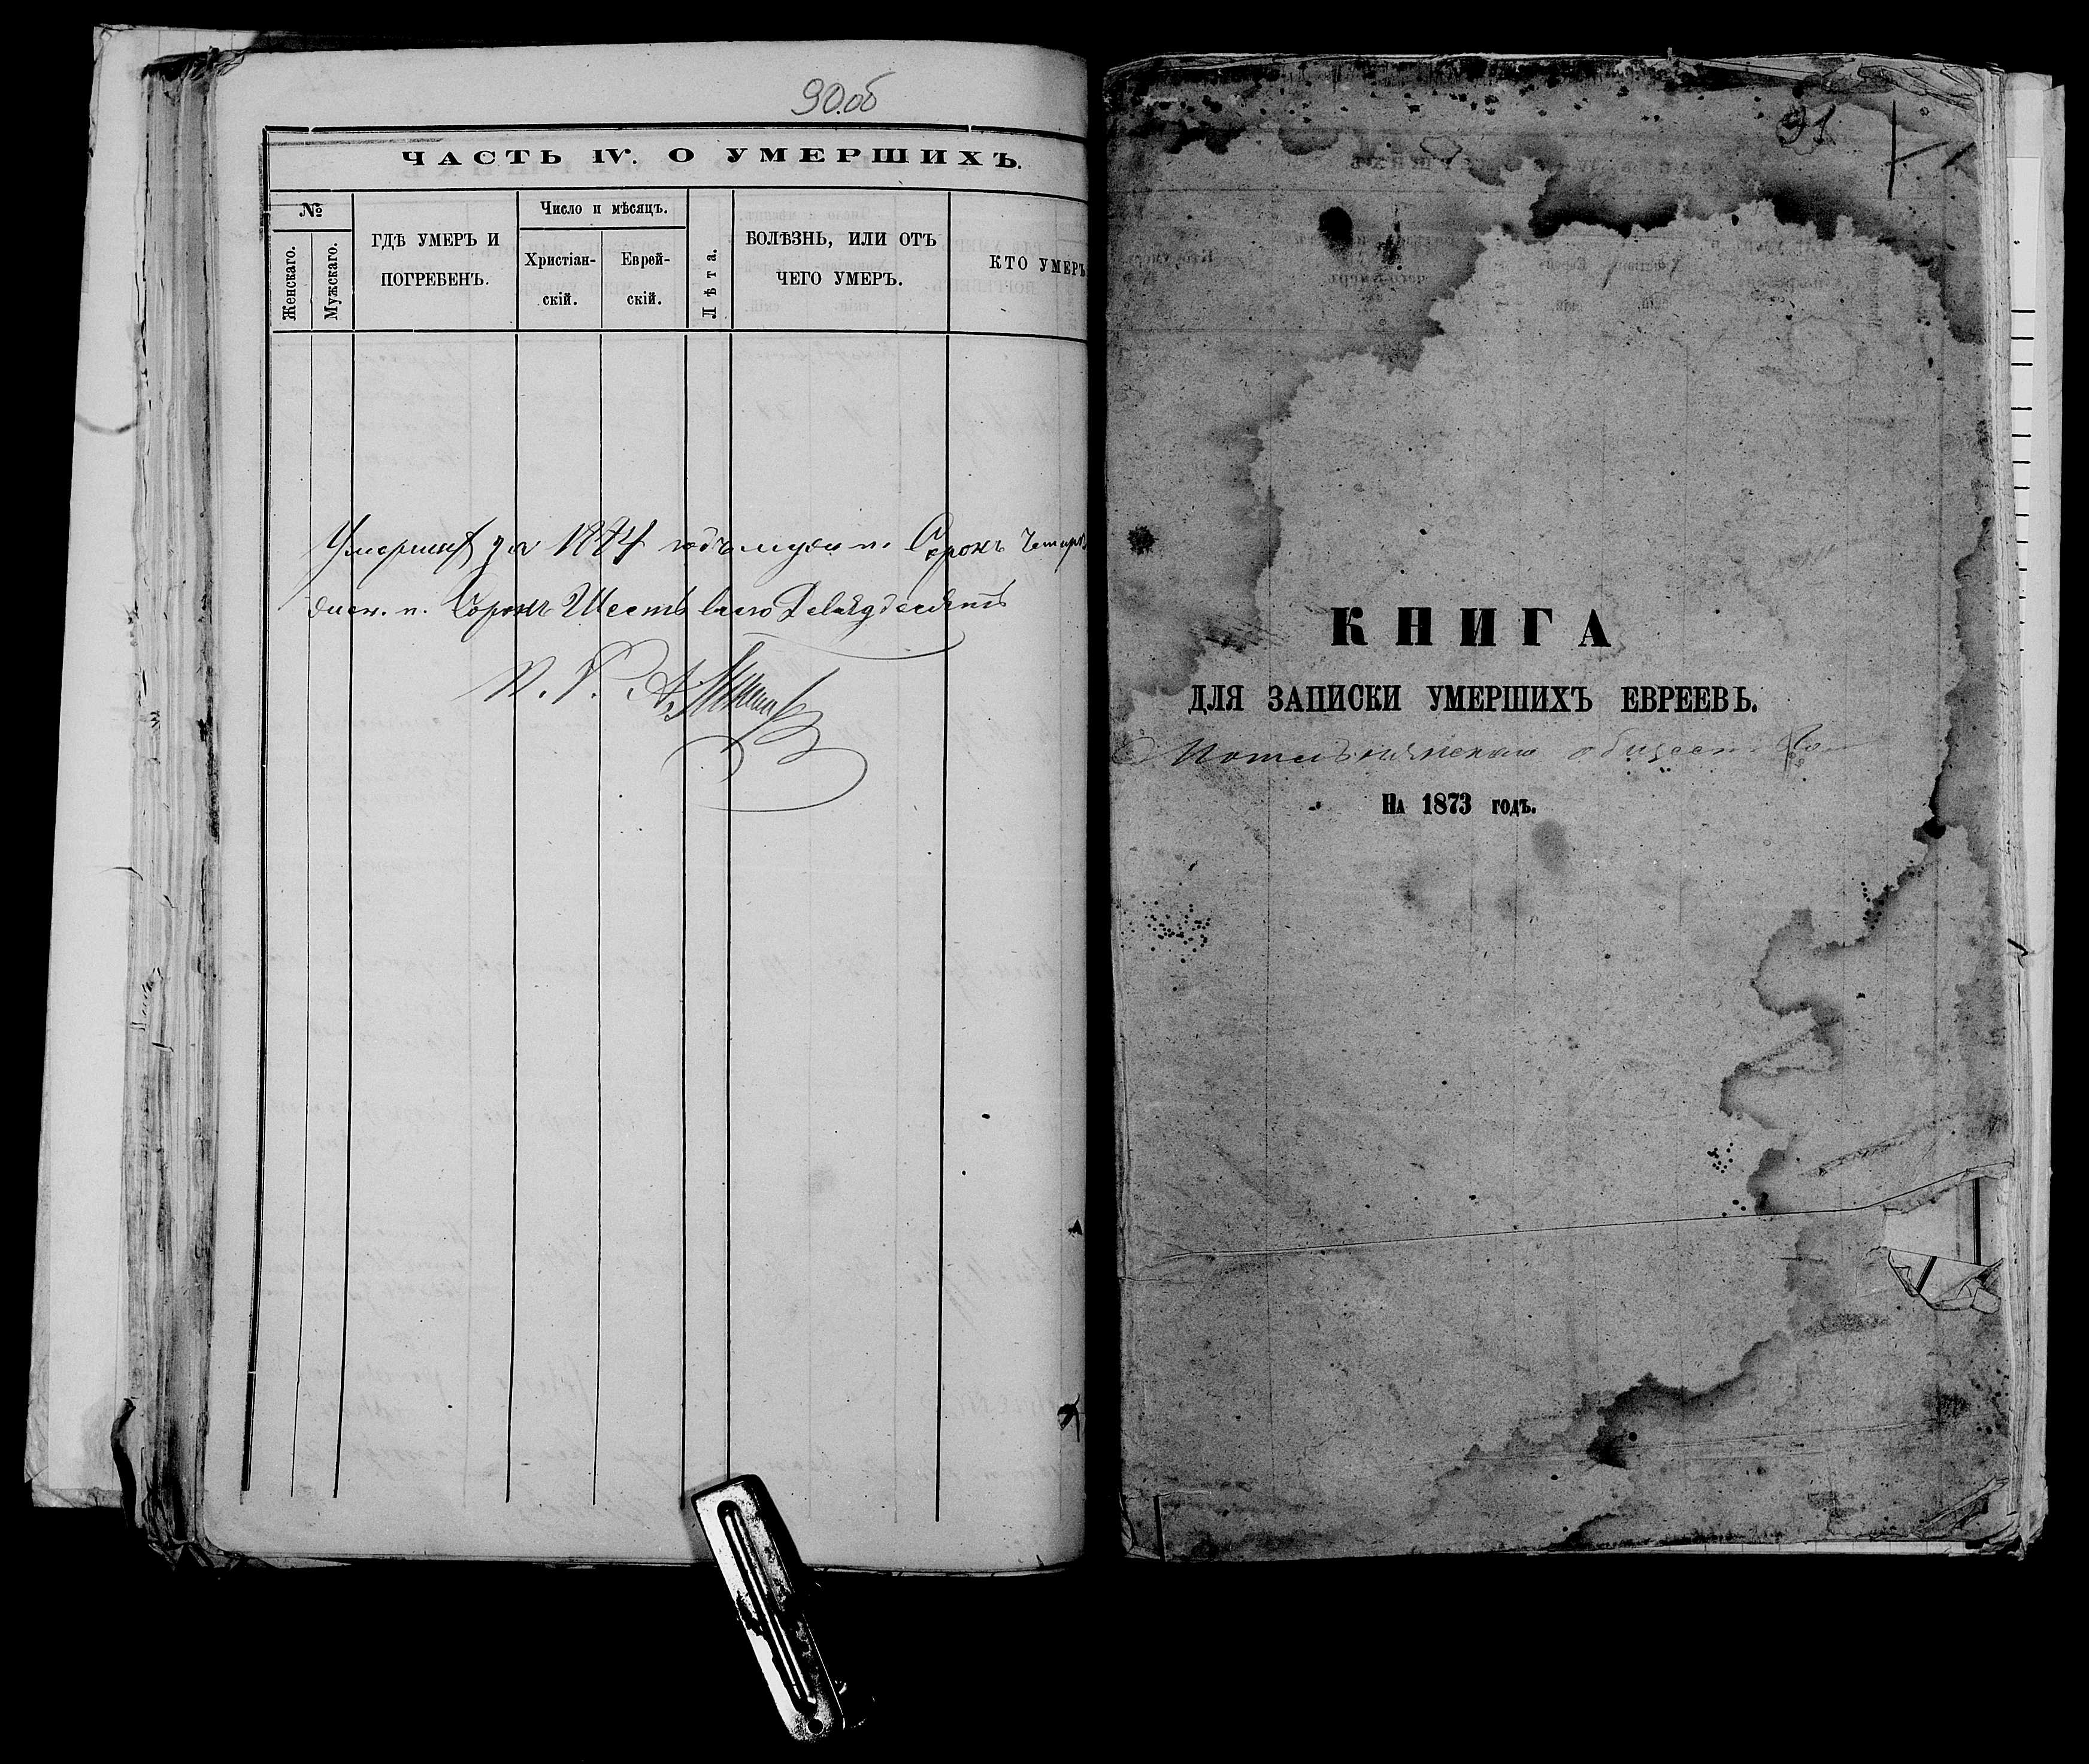 90.об
ЧАСТЬ IV. О УМЕРШИХЪ.
№
Женскаго.
Мужскаго.
ГДѢ УМЕРЪ И
ПОГРЕБЕНЪ.
Число и мѣсяцъ.
Христіан-
скій.
Еврей-
скій.
Лѣта.
БОЛѢЗНЬ, ИЛИ ОТЪ
ЧЕГО УМЕРЪ.
КТО УМЕРЪ
Умершихъ за годъ муж. п. Сорокъ Четыре
женс. п. Сорокъ Шесть всего Девядесятъ
А.
91
КНИГА
ДЛЯ ЗАПИСКИ УМЕРШИХЪ ЕВРЕЕВЪ.
НА 1873 ГОДЪ.